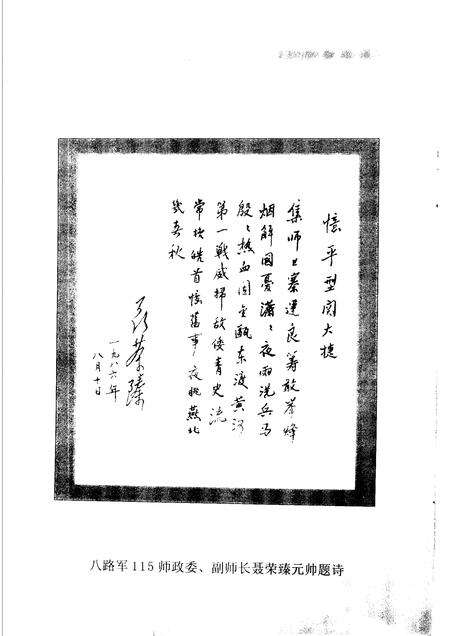 忆平型関大捷
集师上寨運良筹敢举烽
烟解國憂潇〻夜雨洗兵马
殷〻热血固金瓯东渡黄河
第一戦威掃敌倭青史流
常抚皓首忆舊事夜眺燕北
几春秋
聂荣臻
一九八六年
八月十日
八路军115师政委、副师长聂荣臻元帅题诗